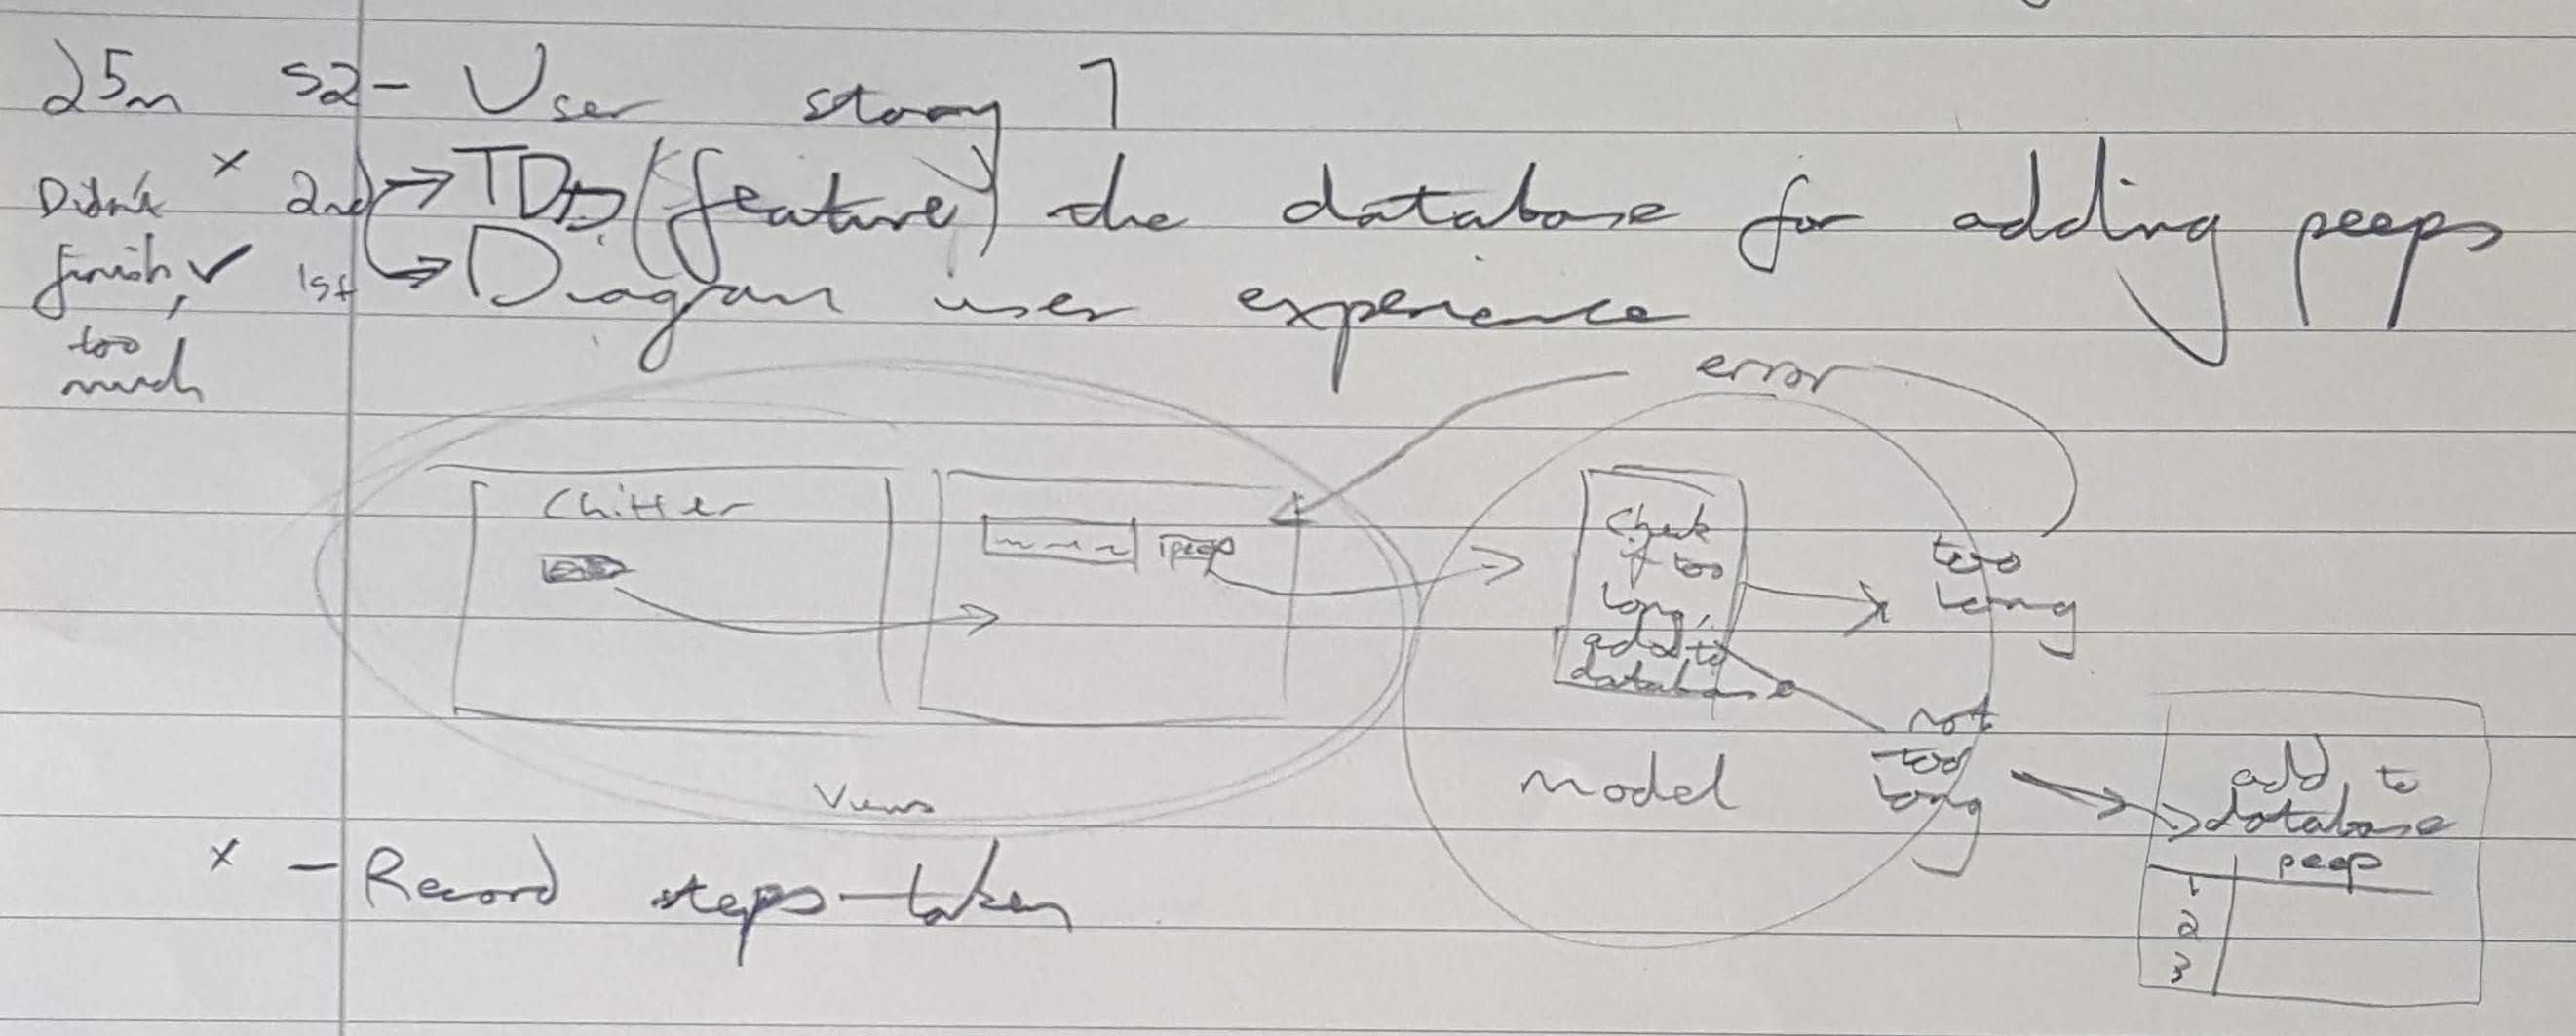 25m S2 - User story 1
Didn't x 2nd → TDD (feature) the database for adding peeps
finish, ✓ 1st → Diagram user experience
too
much
error
Chitter
peep
Check
if too
long,
add to
database
too
long
not
too
long
model
Views
add to
database
peep
1
2
3
x - Record steps taken